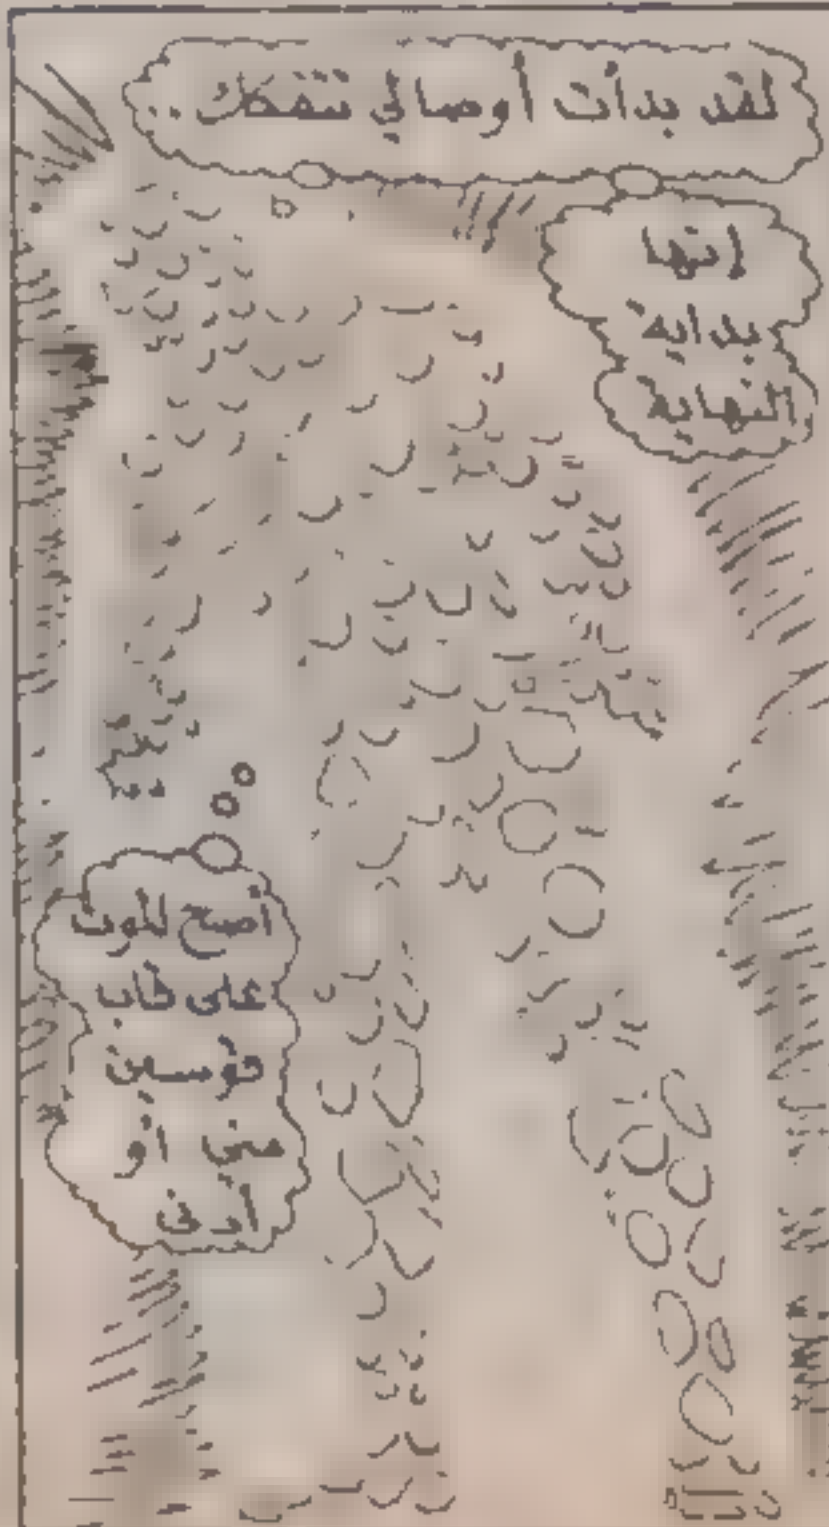 لقد بدأت أوصالي تتفكك ..
إنها
بداية
النهاية
أصبح الموت
على قاب
قوسين
مني أو
أدنى